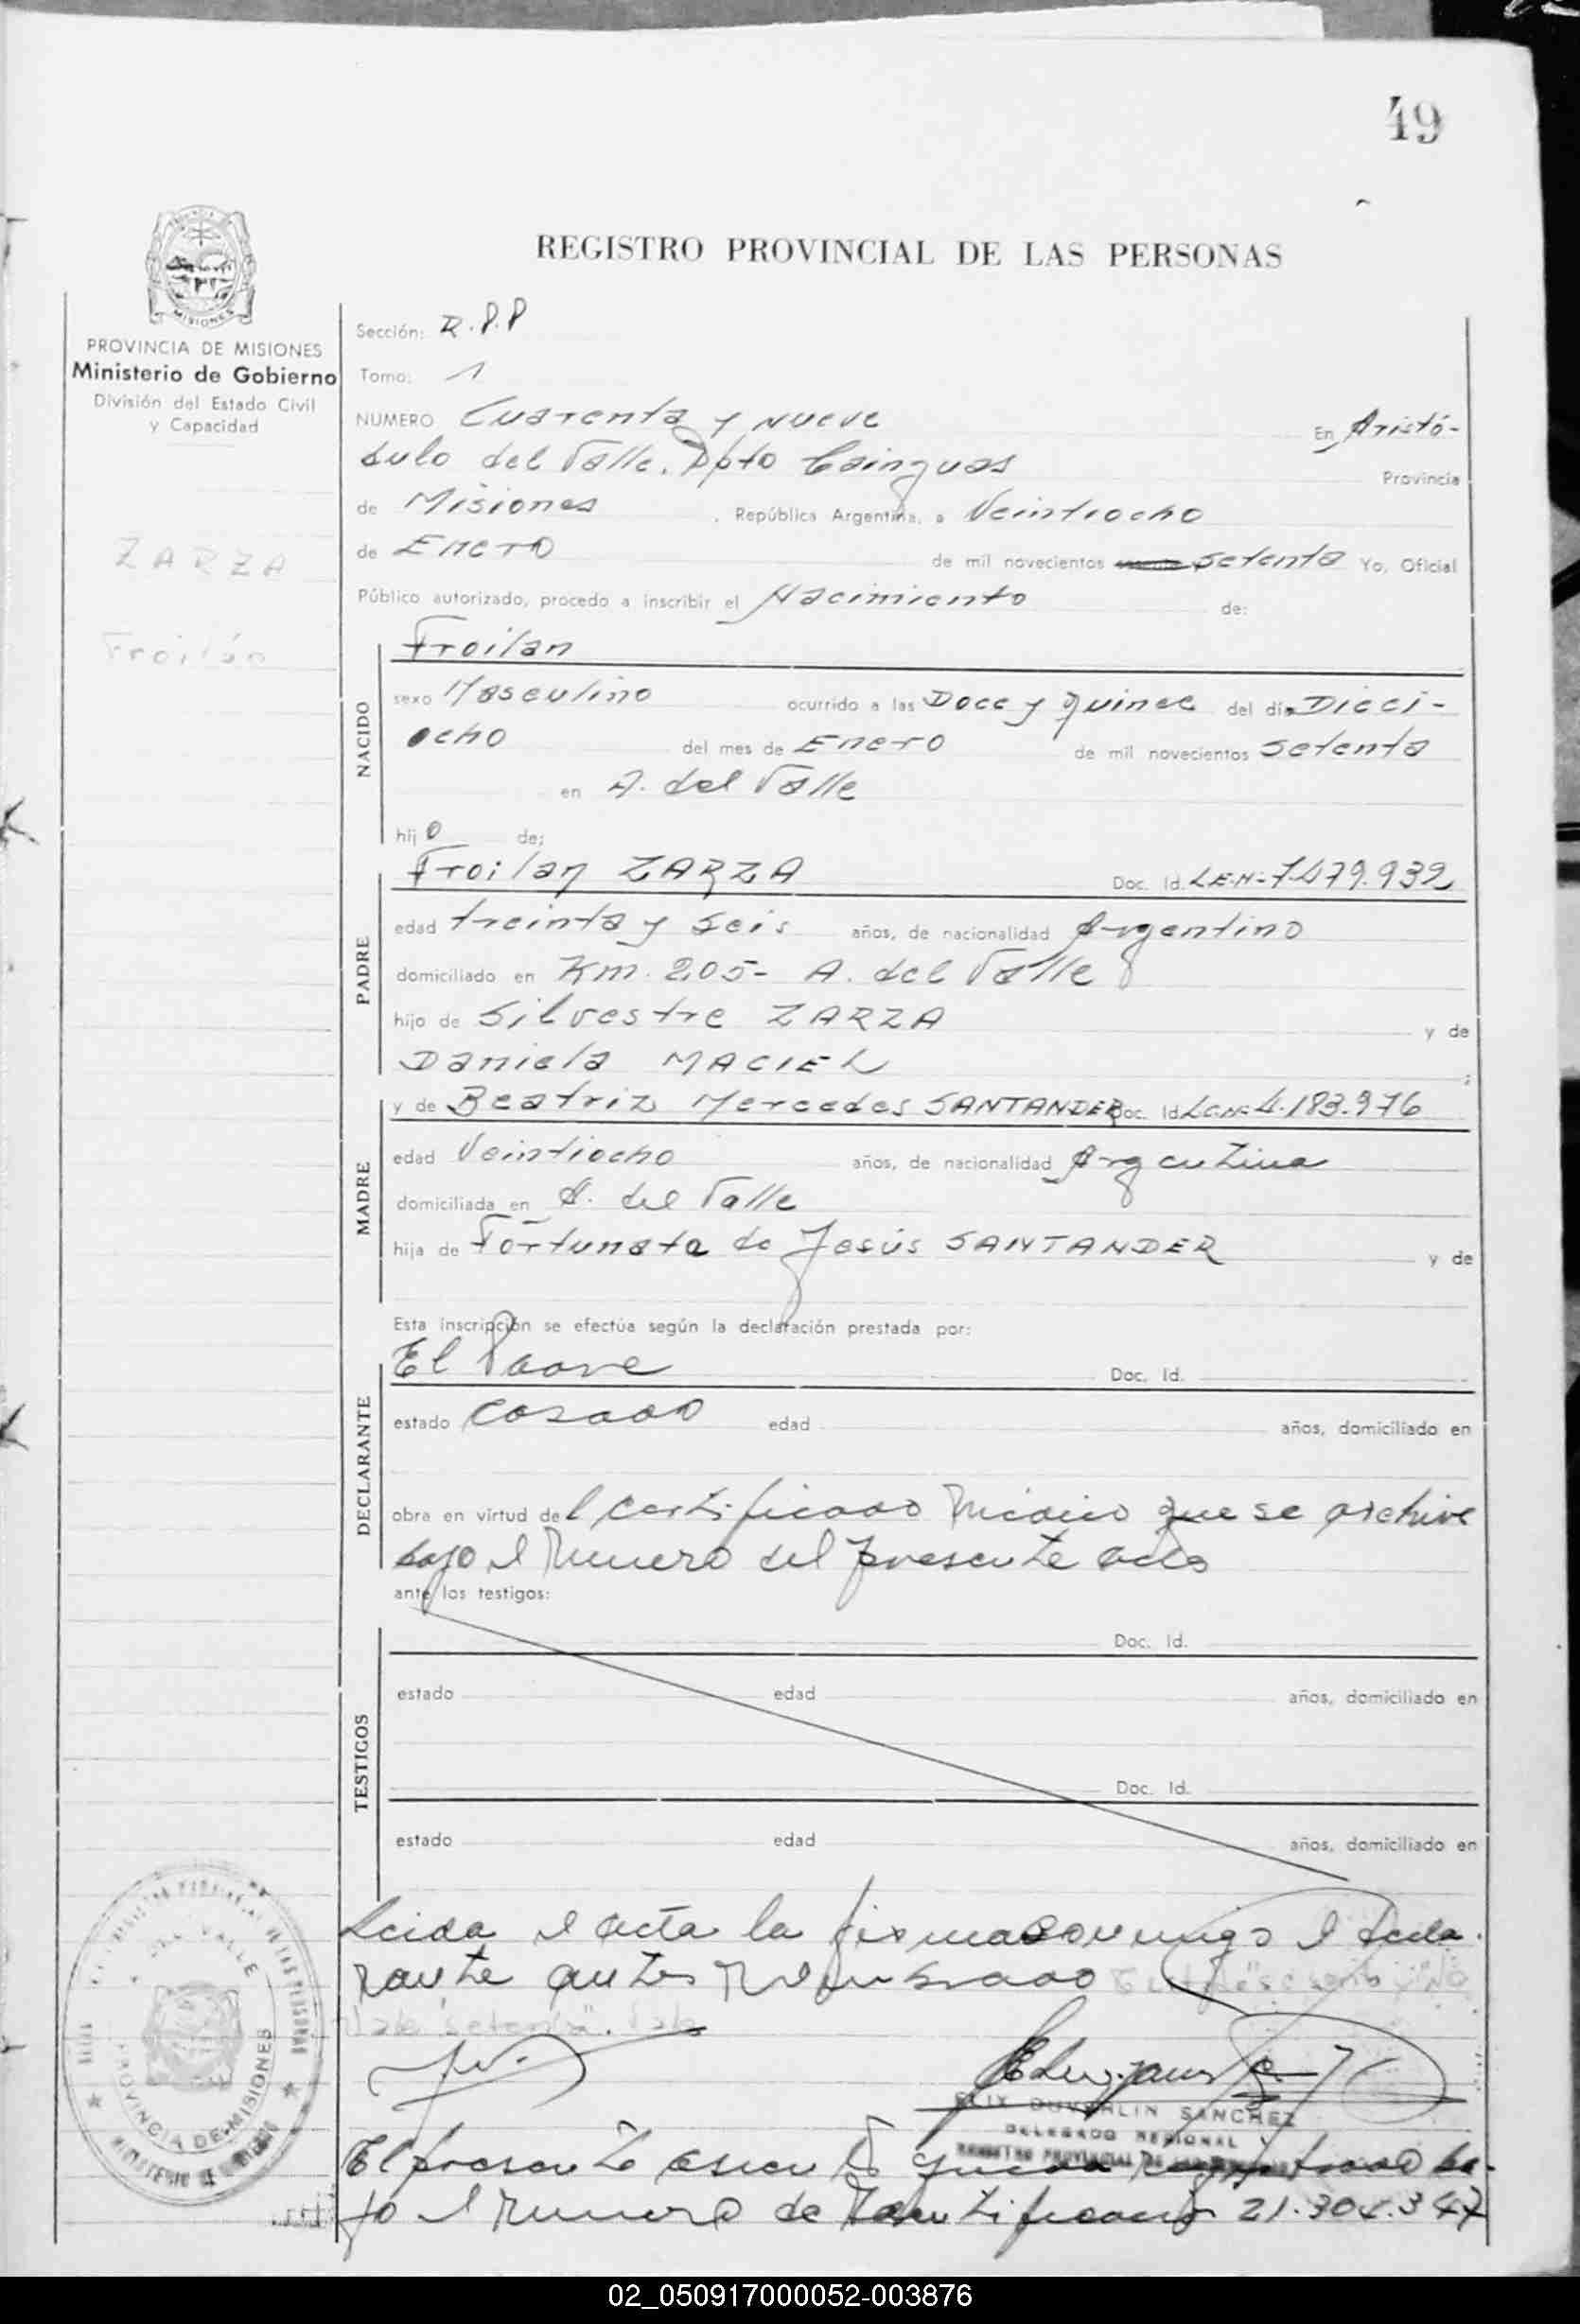 49
REGISTRO PROVINCIAL DE LAS PERSONAS
MISIONES
PROVINCIA DE MISIONES
Ministerio de Gobierno
División del Estado Civil
y Capacidad
ZARZA
Froilán
Sección: R.P.P
Tomo: 1
NUMERO Cuarenta y nueve En Aristó-
bulo del Valle. Dpto Cainguas Provincia
de Misiones , República Argentina, a Veintiocho
de Enero de mil novecientos setenta Yo, Oficial
Público autorizado, procedo a inscribir el Nacimiento de:
NACIDO
Froilan
sexo Masculino ocurrido a las Doce y quince del día Dieci-
ocho del mes de Enero de mil novecientos setenta
en A. del Valle
hijo de;
PADRE
Froilan ZARZA Doc. Id. L.E.N:- 7.479.932
edad treinta y seis años, de nacionalidad Argentino
domiciliado en Km. 205- A. del Valle
hijo de Silvestre ZARZA y de
Daniela MACIEL ;
MADRE
y de Beatriz Mercedes SANTANDER Doc. Id L.C.N: 4.183.976
edad Veintiocho años, de nacionalidad Argentina
domiciliada en A. del Valle
hija de Fortunata de Jesús SANTANDER y de
Esta inscripción se efectúa según la declaración prestada por:
DECLARANTE
El Padre Doc. Id.
estado Casado edad años, domiciliado en
obra en virtud del Certificado Médico que se archiva
bajo el Número del presente acta
ante los testigos:
TESTIGOS
Doc. Id.
estado edad años, domiciliado en
Doc. Id.
estado edad años, domiciliado en
Leida el acta la firma conmigo el decla-
rante antes nombrado
Vale "setenta". Vale
FELIX DUVERLIN SANCHEZ
DELEGADO REGIONAL
REGISTRO PROVINCIAL DE LAS PERSONAS
PROVINCIA DE MISIONES
El presente queda registrado ba-
jo el Número de Identificación 21.304.347
02_050917000052-003876